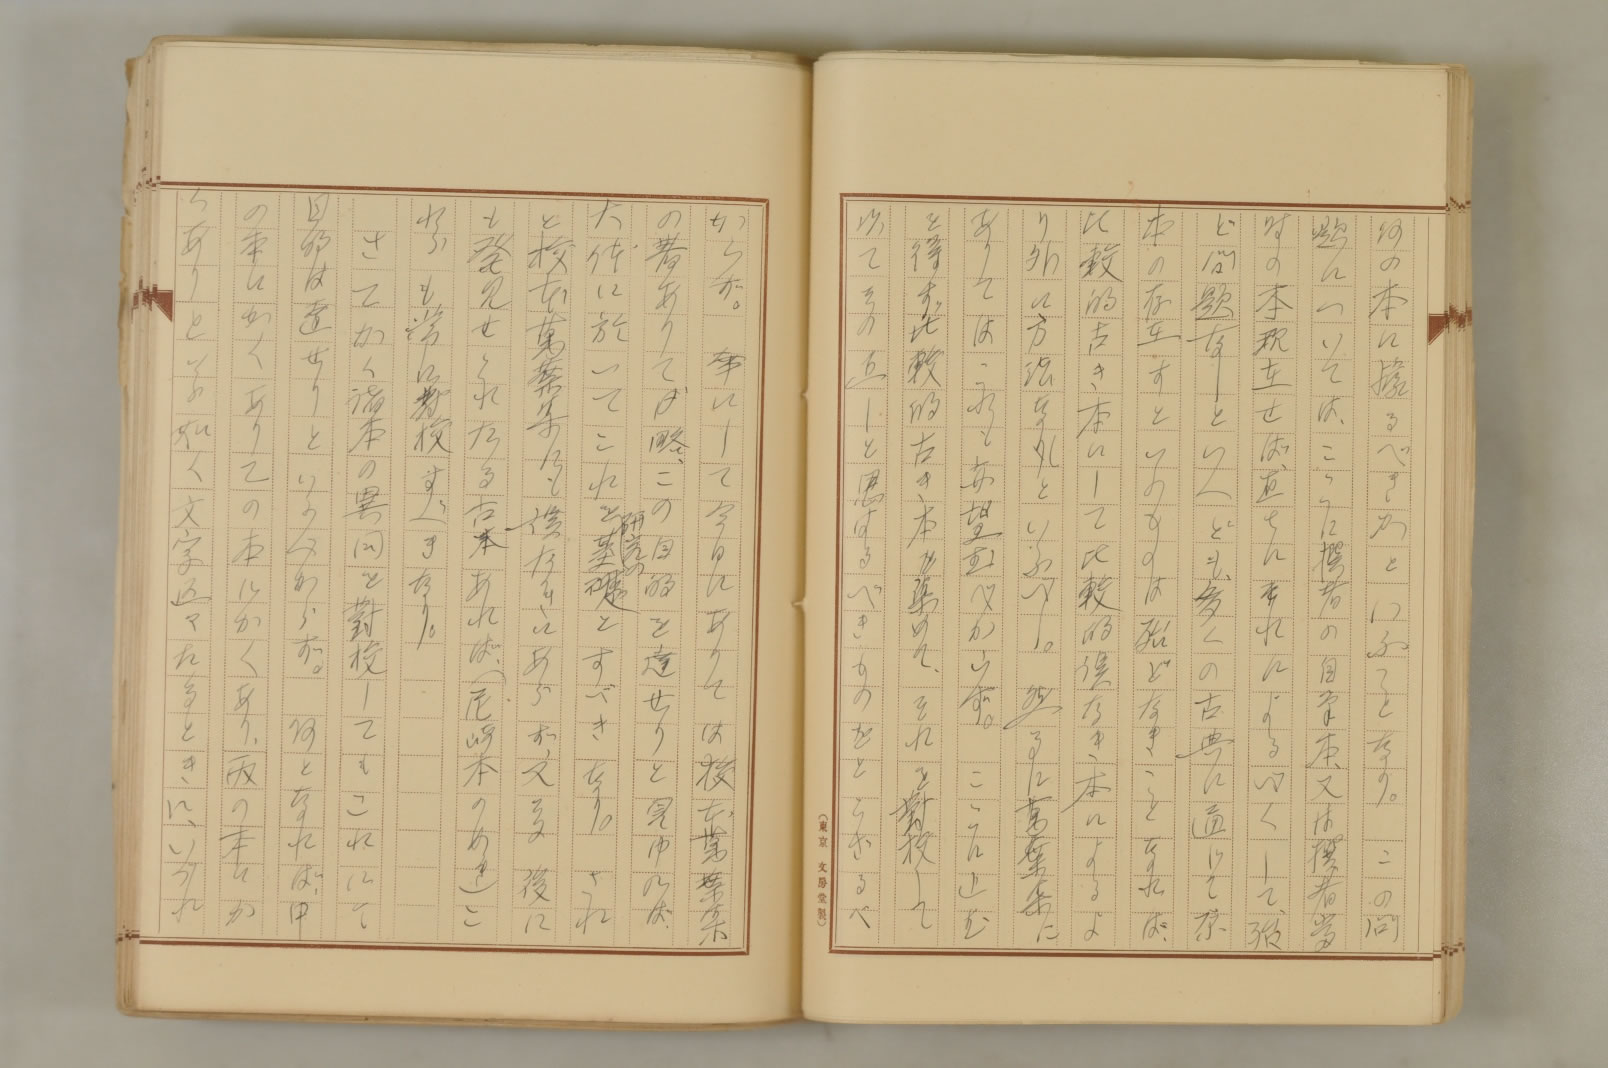 何の本に據るべきかといふことなり。この問
題については、こゝに撰者の自筆本、又は撰者當
時の本現在せば、直ちにそれによるべくして、殆
ど問題なしといへども、多くの古典に通じて原
本の存在すといふものは殆どなきことなれば、
比較的古き本にして比較的誤なき本によるよ
り外に方法なしといふべし。然るに萬葉集に
ありてはこれも希望すべからず。こゝに止む
を得ず比較的古き本を集めて、それを對校して
以てその正しと思はるべきものをとらざるべ
からず。幸にして今日にありては校本萬葉集
の著ありてほゞ略、この目的を達せりと見ゆれば、
大体に於いてこれを研究の基礎とすべきなり。されど
校本萬葉集にも誤なきにあらず、又その後に
も發見せられたる古本あれば、(尼崎本のめき)こ
れらも常に對校すべきなり。
さてかく諸本の異同を對校してもこれにて
目的は達せりといふべからず。何となれば、甲
の本にかくあり乙の本にかくあり、丙の本にか
くありといふ如く文字區々たるときに、いづれ
(東京 文房堂製)